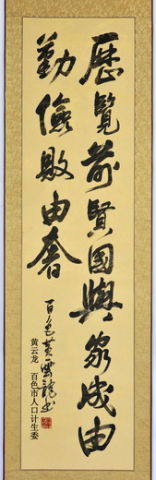 歷覽前賢國與家成由
勤儉敗由奢
百色黄雲龍书
黄云龙 百色市人口计生委